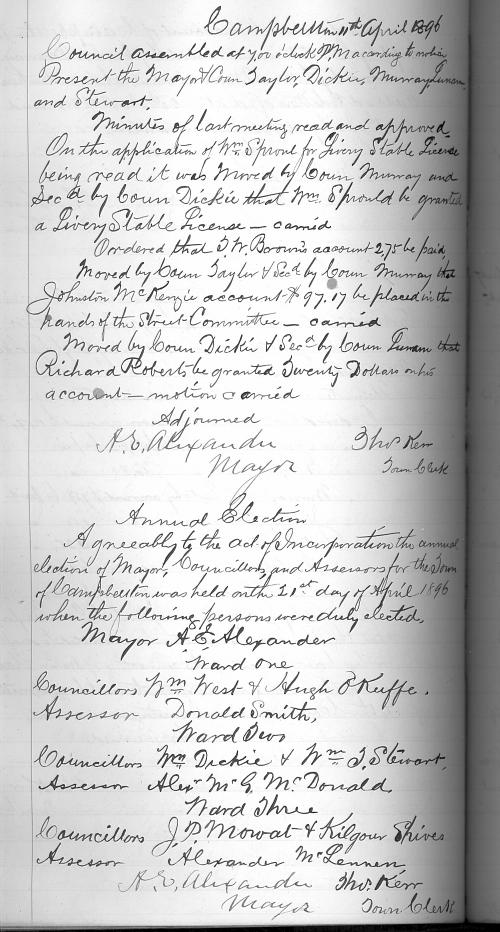 Campbellton 11th April 1896
Council assembled at 7,00 o'clock P.M according to notice
Present the Mayor & Coun Taylor, Dickie, Murray, Lunam
and Stewart.
Minutes of last meeting read and approved
On the application of Wm Sproul for Livery Stable License
being read it was Moved by Coun Murray and
Secd by Coun Dickie that Wm Sproul be granted
a Livery Stable License — carried
Ordered that T. W. Brown's account 2,75 be paid,
Moved by Coun Taylor & Secd by Coun Murray that
Johnston McKenzie account $97.17 be placed in the
hands of the Street Committee — carried
Moved by Coun Dickie & Secd by Coun Lunam that
Richard Roberts be granted Twenty Dollars on his
account — motion carried
Adjourned
A. E. Alexander Thos Kerr
Mayor Town Clerk
Annual Election
Agreeably to the act of Incorporation the annual
election of Mayor, Councillors, and Assessors for the Town
of Campbellton was held on the 21st day of April 1896
when the following persons were duly elected,
Mayor A. E. Alexander
Ward One
Councillors Wm West & Hugh O'Keeffe.
Assessor Donald Smith,
Ward Two
Councillors Wm Dickie & Wm J. Stewart,
Assessor Alexr McG. McDonald
Ward Three
Councillors J. P. Mowat & Kilgour Shives
Assessor Alexander McLennen
A. E. Alexander Thos. Kerr
Mayor Town Clerk